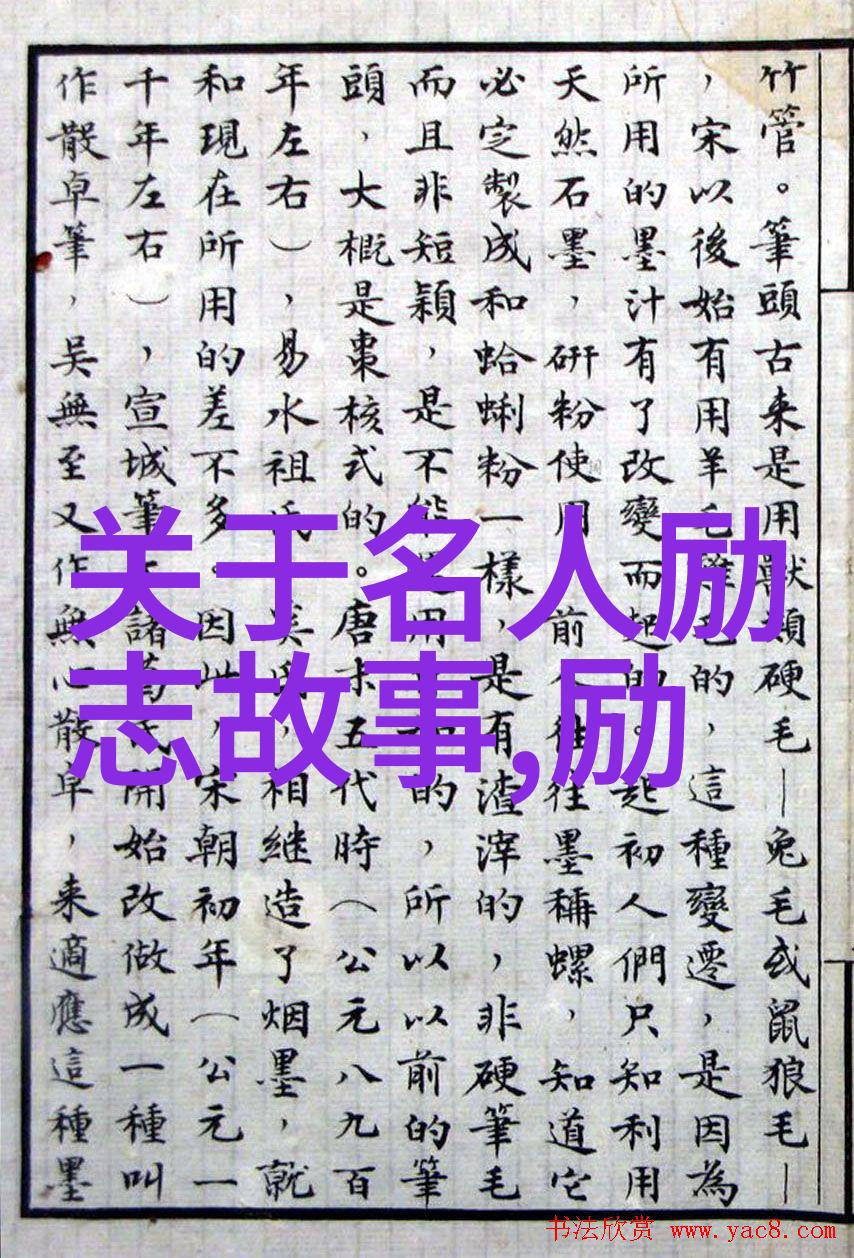 竹管。筆頭古来是用獸類硬毛—兔毛或鼠狼毛—
，宋以後始有用羊毛雞毛的，這種變遷，是因為
所用的墨汁有了改變而起的。起初人們只知利用
天然石墨，研粉使用 前人往往墨稱螺，知道它
必定製成和蛤蜊粉一樣，是有渣滓的，非硬筆毛
而且非短穎，是不能 用 的，所以以前的筆
頭，大概是棗核式的。唐末五代時（公元八九百
年左右），易水祖氏 奚氏，相继造了烟墨，就
和現在所用的差不多。因此，宋朝初年（公元一
千年左右），宣城筆 諸葛氏開始改做成一種叫
作散卓筆，吴無至又作無心散卓，来適應這種墨
关于名人励
志故事,励
书法欣赏 www.yac8.com